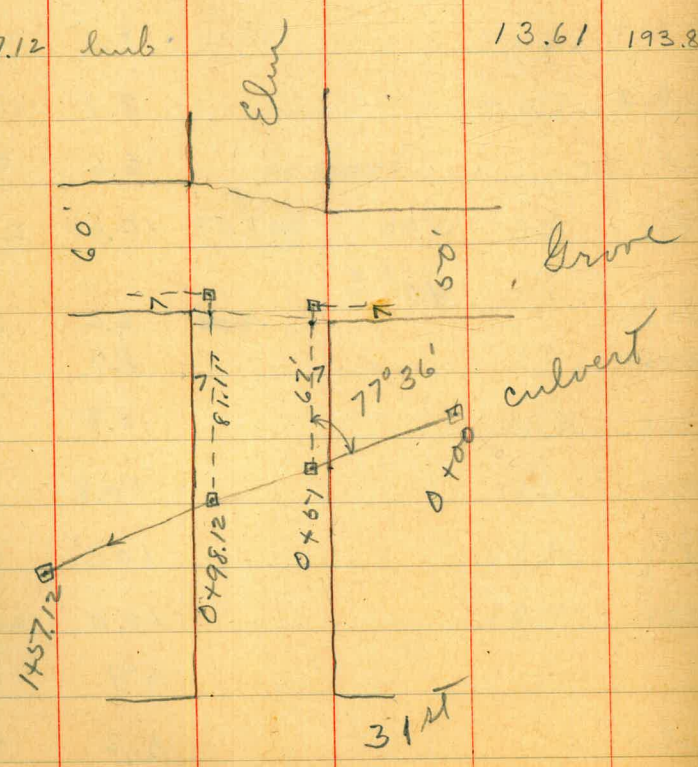 7.12 hub 13.61 193.8
Elm
60'
50'
Grove
7
7
7
81.11
63'
7
77° 36'
culvert
0+00
0+67
0+98.12
1+57.12
31st